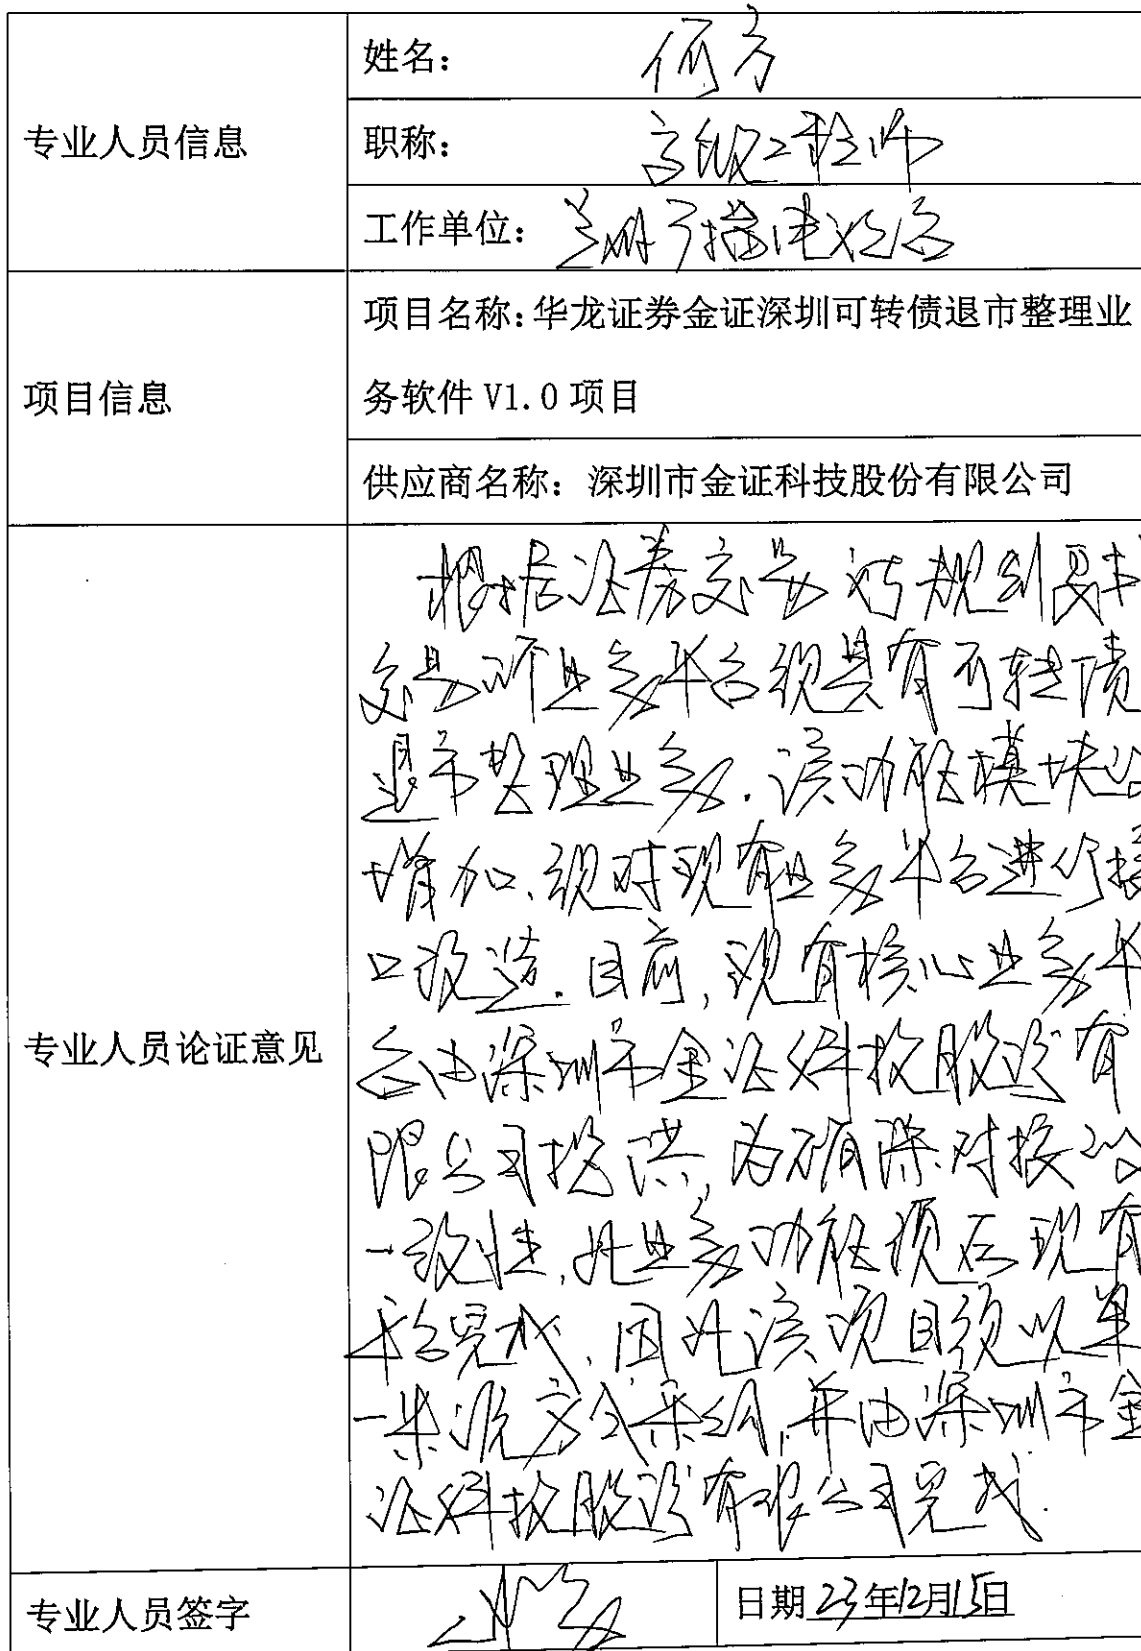 专业人员信息
姓名：何方
职称：高级工程师
工作单位：兰州广播电视台
项目信息
项目名称：华龙证券金证深圳可转债退市整理业
务软件 V1.0 项目
供应商名称：深圳市金证科技股份有限公司
专业人员论证意见
根据证券交易所规则要求
交易所业务平台须具有可转债
退市整理业务.该功能模块的
增加,须对现有业务平台进行接
口改造.目前,现有核心业务平
台由深圳市金证科技股份有
限公司提供,为确保对接的
一致性,此业务功能须在现有
平台完成,因此该项目须以单
一来源方式采购,并由深圳市金
证科技股份有限公司完成.
专业人员签字
日期 23年12月15日